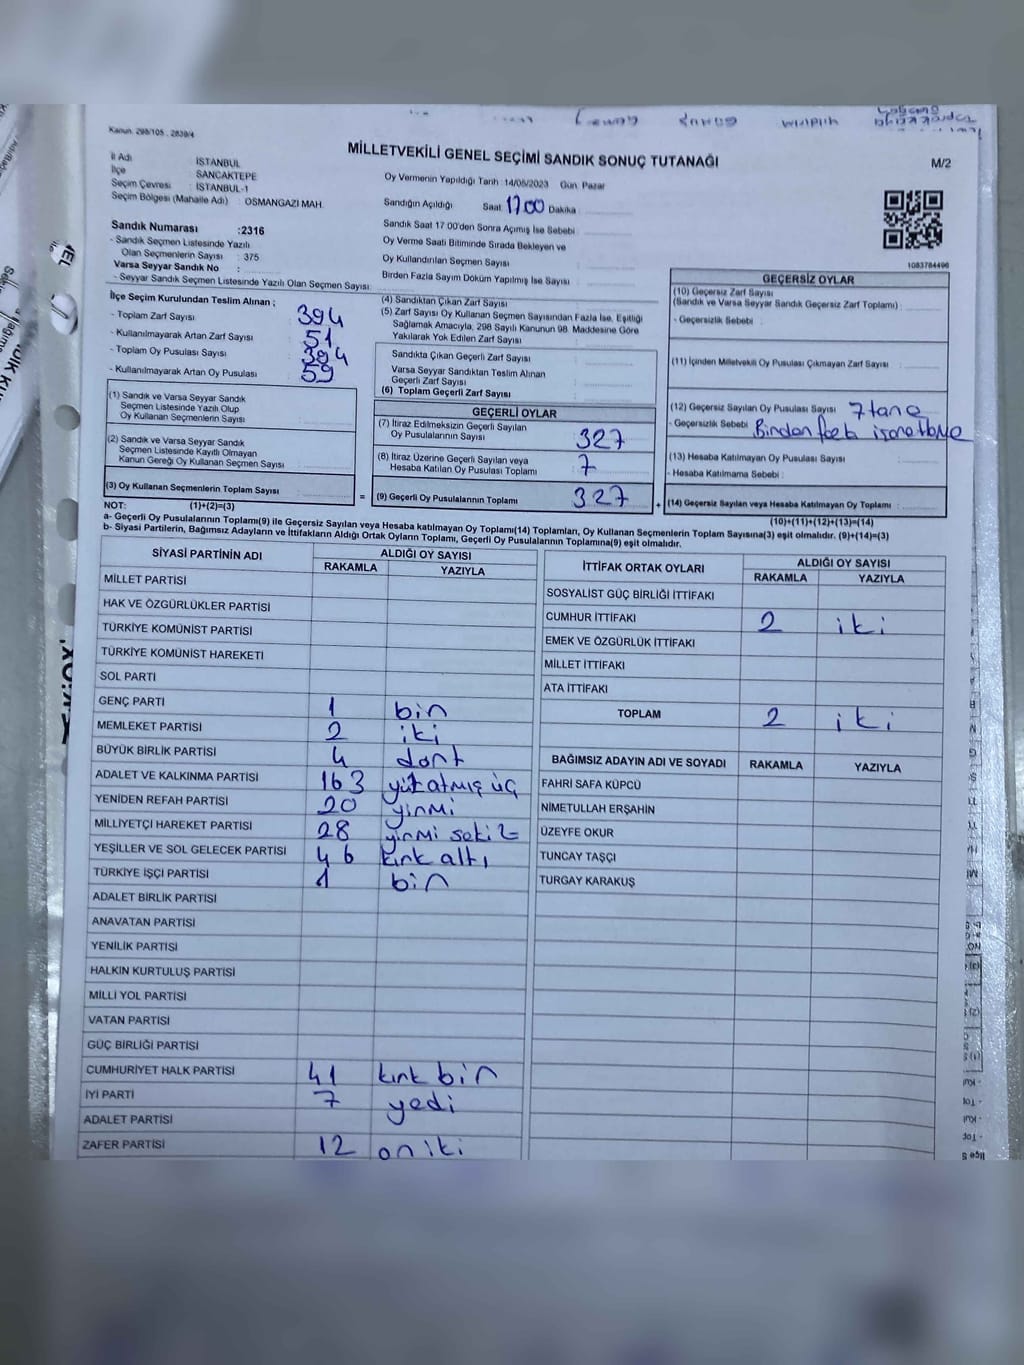 Kanun. 298/105 . 2839/4
MİLLETVEKİLİ GENEL SEÇİMİ SANDIK SONUÇ TUTANAĞI
M/2
İl Adı : İSTANBUL
İlçe : SANCAKTEPE
Seçim Çevresi : İSTANBUL-1
Seçim Bölgesi (Mahalle Adı) : OSMANGAZİ MAH.
Oy Vermenin Yapıldığı Tarih :14/05/2023 Gün Pazar
Sandığın Açıldığı Saat 17.00 Dakika
Sandık Saat 17.00'den Sonra Açılmış İse Sebebi
Oy Verme Saati Bitiminde Sırada Bekleyen ve
Oy Kullandırılan Seçmen Sayısı
Birden Fazla Sayım Döküm Yapılmış İse Sayısı
Sandık Numarası :2316
- Sandık Seçmen Listesinde Yazılı
Olan Seçmenlerin Sayısı : 375
Varsa Seyyar Sandık No :
- Seyyar Sandık Seçmen Listesinde Yazılı Olan Seçmen Sayısı
1083784496
İlçe Seçim Kurulundan Teslim Alınan ;
- Toplam Zarf Sayısı : 394
- Kullanılmayarak Artan Zarf Sayısı : 51
- Toplam Oy Pusulası Sayısı : 394
- Kullanılmayarak Artan Oy Pusulası : 59
(1) Sandık ve Varsa Seyyar Sandık
Seçmen Listesinde Yazılı Olup
Oy Kullanan Seçmenlerin Sayısı
(2) Sandık ve Varsa Seyyar Sandık
Seçmen Listesinde Kayıtlı Olmayan
Kanun Gereği Oy Kullanan Seçmen Sayısı
(3) Oy Kullanan Seçmenlerin Toplam Sayısı
(4) Sandıktan Çıkan Zarf Sayısı
(5) Zarf Sayısı Oy Kullanan Seçmen Sayısından Fazla İse, Eşitliği
Sağlamak Amacıyla, 298 Sayılı Kanunun 98. Maddesine Göre
Yakılarak Yok Edilen Zarf Sayısı
Sandıkta Çıkan Geçerli Zarf Sayısı
Varsa Seyyar Sandıktan Teslim Alınan
Geçerli Zarf Sayısı
(6) Toplam Geçerli Zarf Sayısı
GEÇERLİ OYLAR
(7) İtiraz Edilmeksizin Geçerli Sayılan
Oy Pusulalarının Sayısı 327
(8) İtiraz Üzerine Geçerli Sayılan veya
Hesaba Katılan Oy Pusulası Toplamı 7
= (9) Geçerli Oy Pusulalarının Toplamı 327 +
GEÇERSİZ OYLAR
(10) Geçersiz Zarf Sayısı
(Sandık ve Varsa Seyyar Sandık Geçersiz Zarf Toplamı) :
- Geçersizlik Sebebi :
(11) İçinden Milletvekili Oy Pusulası Çıkmayan Zarf Sayısı
(12) Geçersiz Sayılan Oy Pusulası Sayısı 7 tane
- Geçersizlik Sebebi Birden
(13) Hesaba Katılmayan Oy Pusulası Sayısı :
- Hesaba Katılmama Sebebi :
(14) Geçersiz Sayılan veya Hesaba Katılmayan Oy Toplamı :
NOT: (1)+(2)=(3)
(10)+(11)+(12)+(13)=(14)
a- Geçerli Oy Pusulalarının Toplamı(9) ile Geçersiz Sayılan veya Hesaba katılmayan Oy Toplamı(14) Toplamları, Oy Kullanan Seçmenlerin Toplam Sayısına(3) eşit olmalıdır. (9)+(14)=(3)
b- Siyasi Partilerin, Bağımsız Adayların ve İttifakların Aldığı Ortak Oyların Toplamı, Geçerli Oy Pusulalarının Toplamına(9) eşit olmalıdır.
SİYASİ PARTİNİN ADI ALDIĞI OY SAYISI
RAKAMLA YAZIYLA
MİLLET PARTİSİ
HAK VE ÖZGÜRLÜKLER PARTİSİ
TÜRKİYE KOMÜNİST PARTİSİ
TÜRKİYE KOMÜNİST HAREKETİ
SOL PARTİ
GENÇ PARTİ 1 bir
MEMLEKET PARTİSİ 2 iki
BÜYÜK BİRLİK PARTİSİ 4 dört
ADALET VE KALKINMA PARTİSİ 163 yüz atmış üç
YENİDEN REFAH PARTİSİ 20 yirmi
MİLLİYETÇİ HAREKET PARTİSİ 28 yirmi sekiz
YEŞİLLER VE SOL GELECEK PARTİSİ 46 kırk altı
TÜRKİYE İŞÇİ PARTİSİ 1 bir
ADALET BİRLİK PARTİSİ
ANAVATAN PARTİSİ
YENİLİK PARTİSİ
HALKIN KURTULUŞ PARTİSİ
MİLLİ YOL PARTİSİ
VATAN PARTİSİ
GÜÇ BİRLİĞİ PARTİSİ
CUMHURİYET HALK PARTİSİ 41 kırk bir
İYİ PARTİ 7 yedi
ADALET PARTİSİ
ZAFER PARTİSİ 12 on iki
İTTİFAK ORTAK OYLARI ALDIĞI OY SAYISI
RAKAMLA YAZIYLA
SOSYALİST GÜÇ BİRLİĞİ İTTİFAKI
CUMHUR İTTİFAKI 2 iki
EMEK VE ÖZGÜRLÜK İTTİFAKI
MİLLET İTTİFAKI
ATA İTTİFAKI
TOPLAM 2 iki
BAĞIMSIZ ADAYIN ADI VE SOYADI RAKAMLA YAZIYLA
FAHRİ SAFA KÜPCÜ
NİMETULLAH ERŞAHİN
ÜZEYFE OKUR
TUNCAY TAŞÇI
TURGAY KARAKUŞ